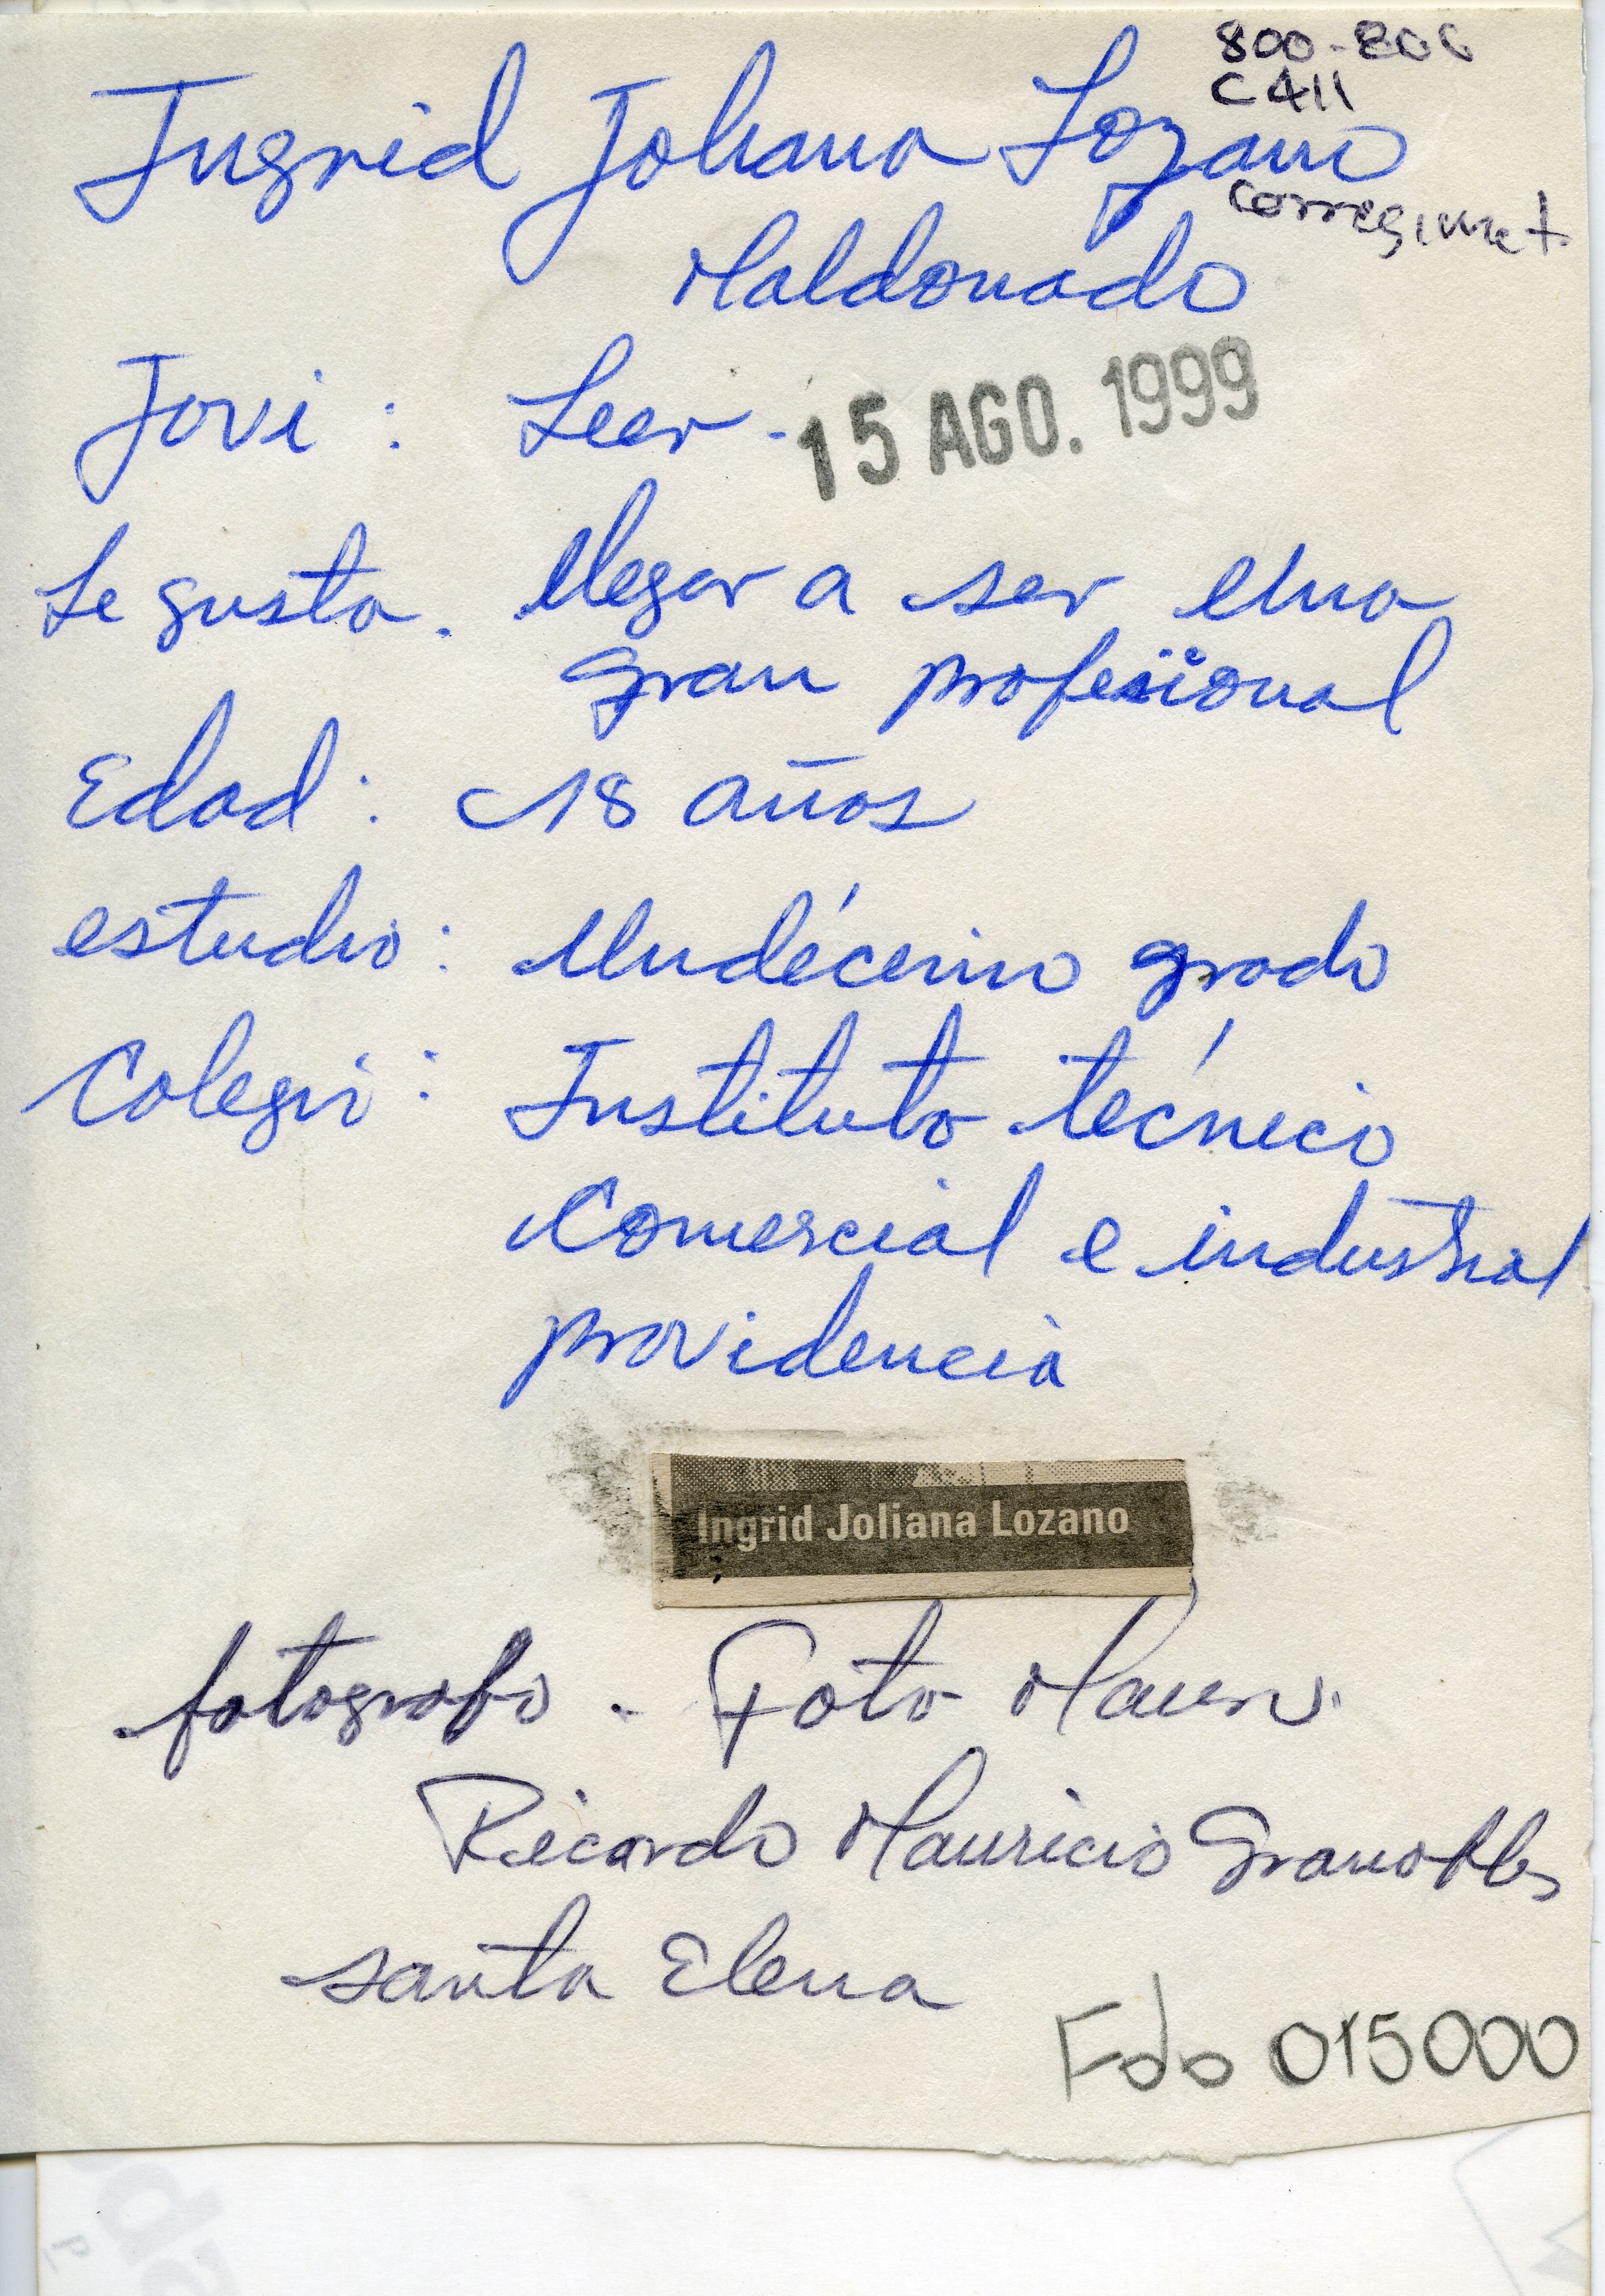 800-806
C411
Ingrid Johana Lozano
corregimet
Maldonado
Jovi: Leer -
15 AGO. 1999
Le gusta. llegar a ser una
gran profesional
Edad: 18 años
estudio: Undécimo grado
Colegio: Instituto técnico
Comercial e industrial
providencia
Ingrid Joliana Lozano
fotografo - Foto Mauro.
Ricardo Mauricio Granobles
santa Elena
Fdo 015000